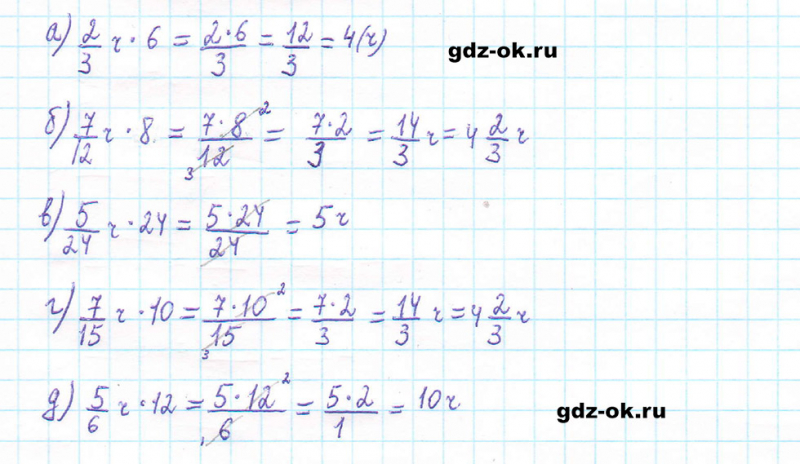 а) 2/3 ч · 6 = 2·6/3 = 12/3 = 4(ч)
gdz-ok.ru
б) 7/12 ч · 8 = 7·8 2/12 3 = 7·2/3 = 14/3 ч = 4 2/3 ч
в) 5/24 ч · 24 = 5·24/24 = 5 ч
г) 7/15 ч · 10 = 7·10 2/15 3 = 7·2/3 = 14/3 ч = 4 2/3 ч
д) 5/6 ч · 12 = 5·12 2/6 1 = 5·2/1 = 10 ч
gdz-ok.ru